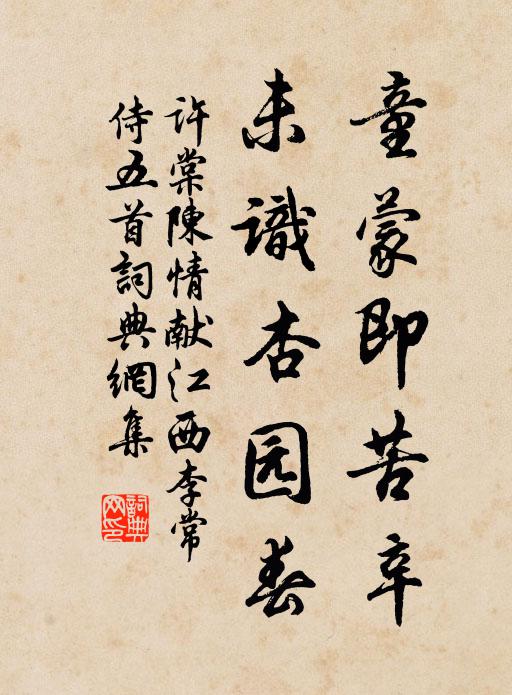 童蒙即苦辛
未識杏园春
許棠陳情献江西李常
侍五首詞典網集
詞典
网印